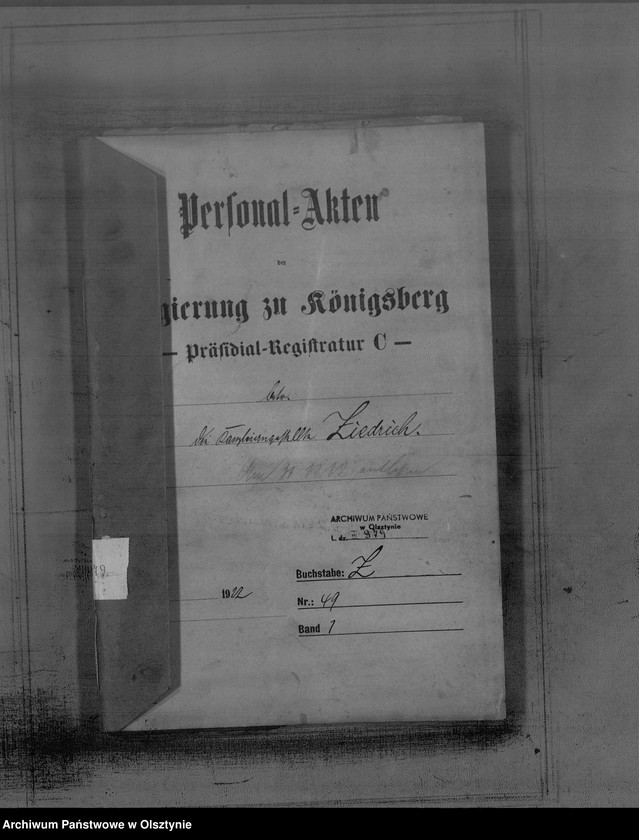 Personal-Akten
der
gierung zu Königsberg
— Präsidial-Registratur C —
betr.
die Kanzleiangestellte Ziedrich.
ARCHIWUM PAŃSTWOWE
w Olsztynie
L. dz. 979
Buchstabe: Z
1922
Nr.: 49
Band 1
Archiwum Państwowe w Olsztynie